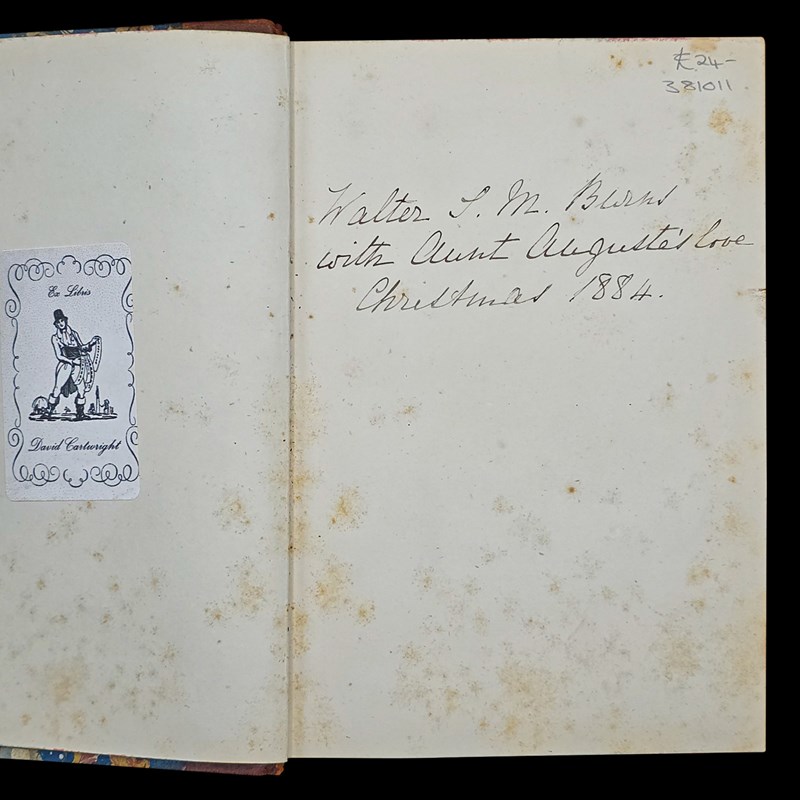 Ex Libris
David Cartwright
£24-
381011
Walter S. M. Burns
with Aunt Auguste's love
Christmas 1884.